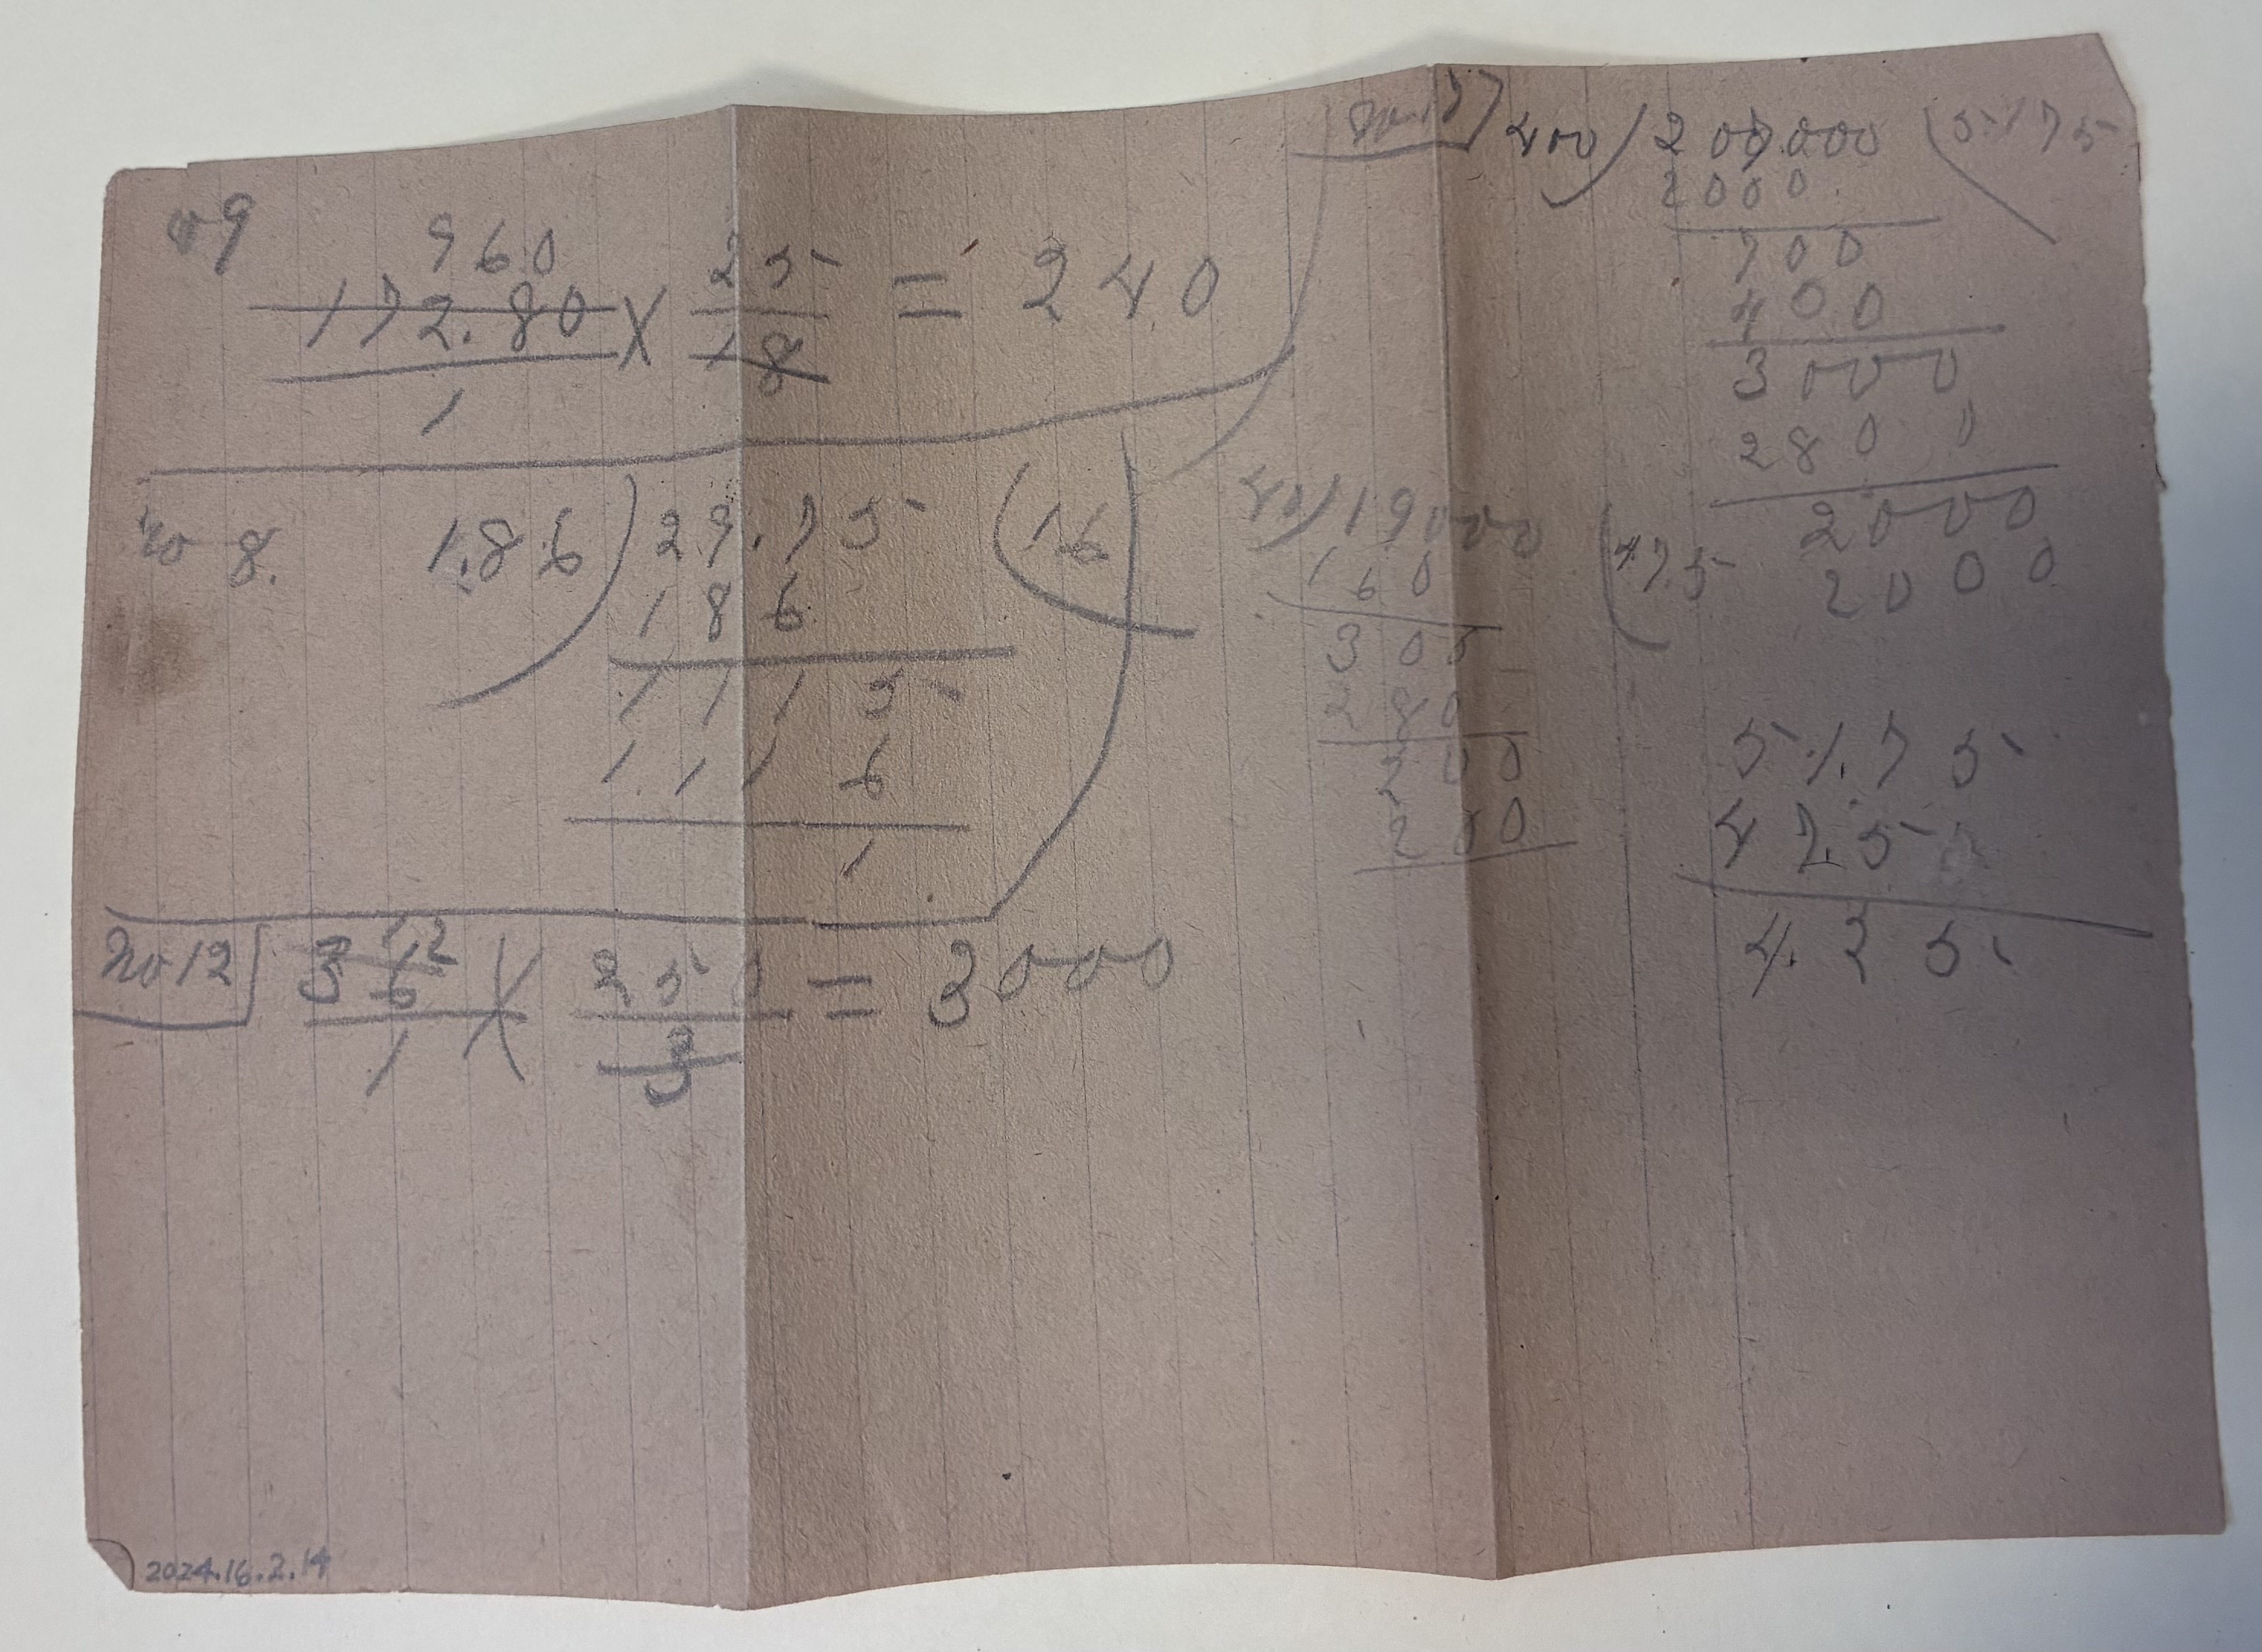 no 9
960
172.80 × 25 = 240
1 18
no 8. 1.86 ) 29.75 ( 16
186
1115
1116
1
no 12 36 12 × 250 = 3000
1 3
400 ) 207000 ( 5175
2000
700
400
3000
2800
2000
2000
40 ) 19000 ( 475
160
300
280
200
200
51.75
47.5
4.25
2024.16.2.14